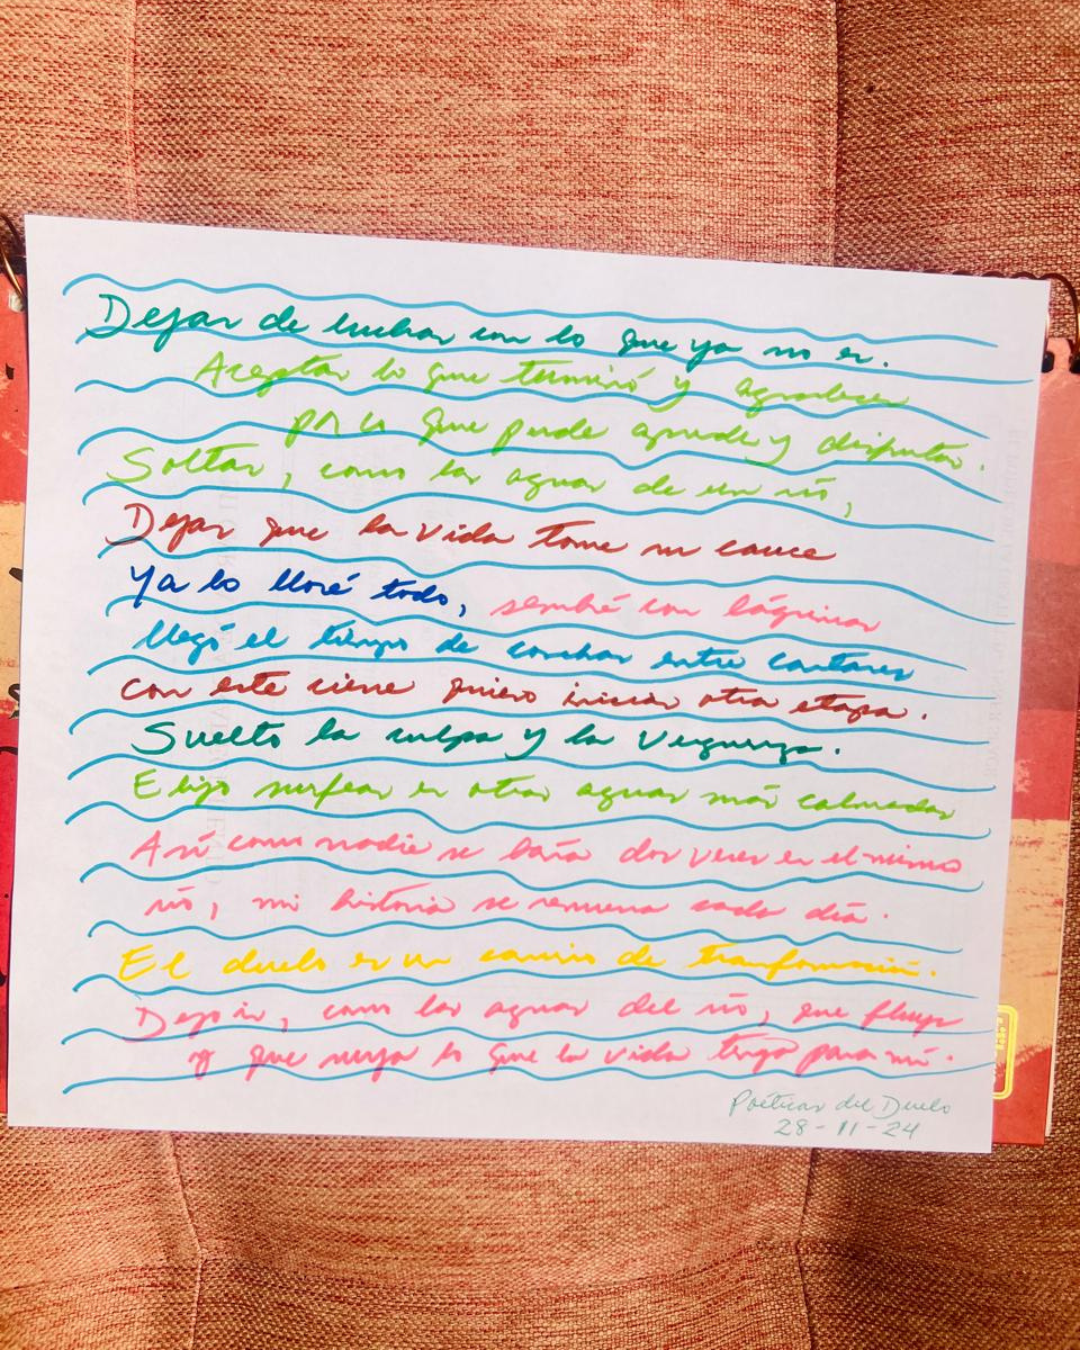 Dejar de luchar con lo que ya no es.
Aceptar lo que terminó y agradecer
por lo que pude aprender y disfrutar.
Soltar, como las aguas de un río,
Dejar que la vida tome su cauce
Ya lo lloré todo, sembré con lágrimas
llegó el tiempo de cosechar entre cantares
con este cierre quiero iniciar otra etapa.
Suelto la culpa y la vergüenza.
Elijo surfear en otras aguas más calmadas
Así como nadie se baña dos veces en el mismo
río, mi historia se renueva cada día.
El duelo es un camino de transformación.
Dejo ir, como las aguas del río, que fluya
y que surja lo que la vida tenga para mí.
Poéticas del Duelo
28-11-24